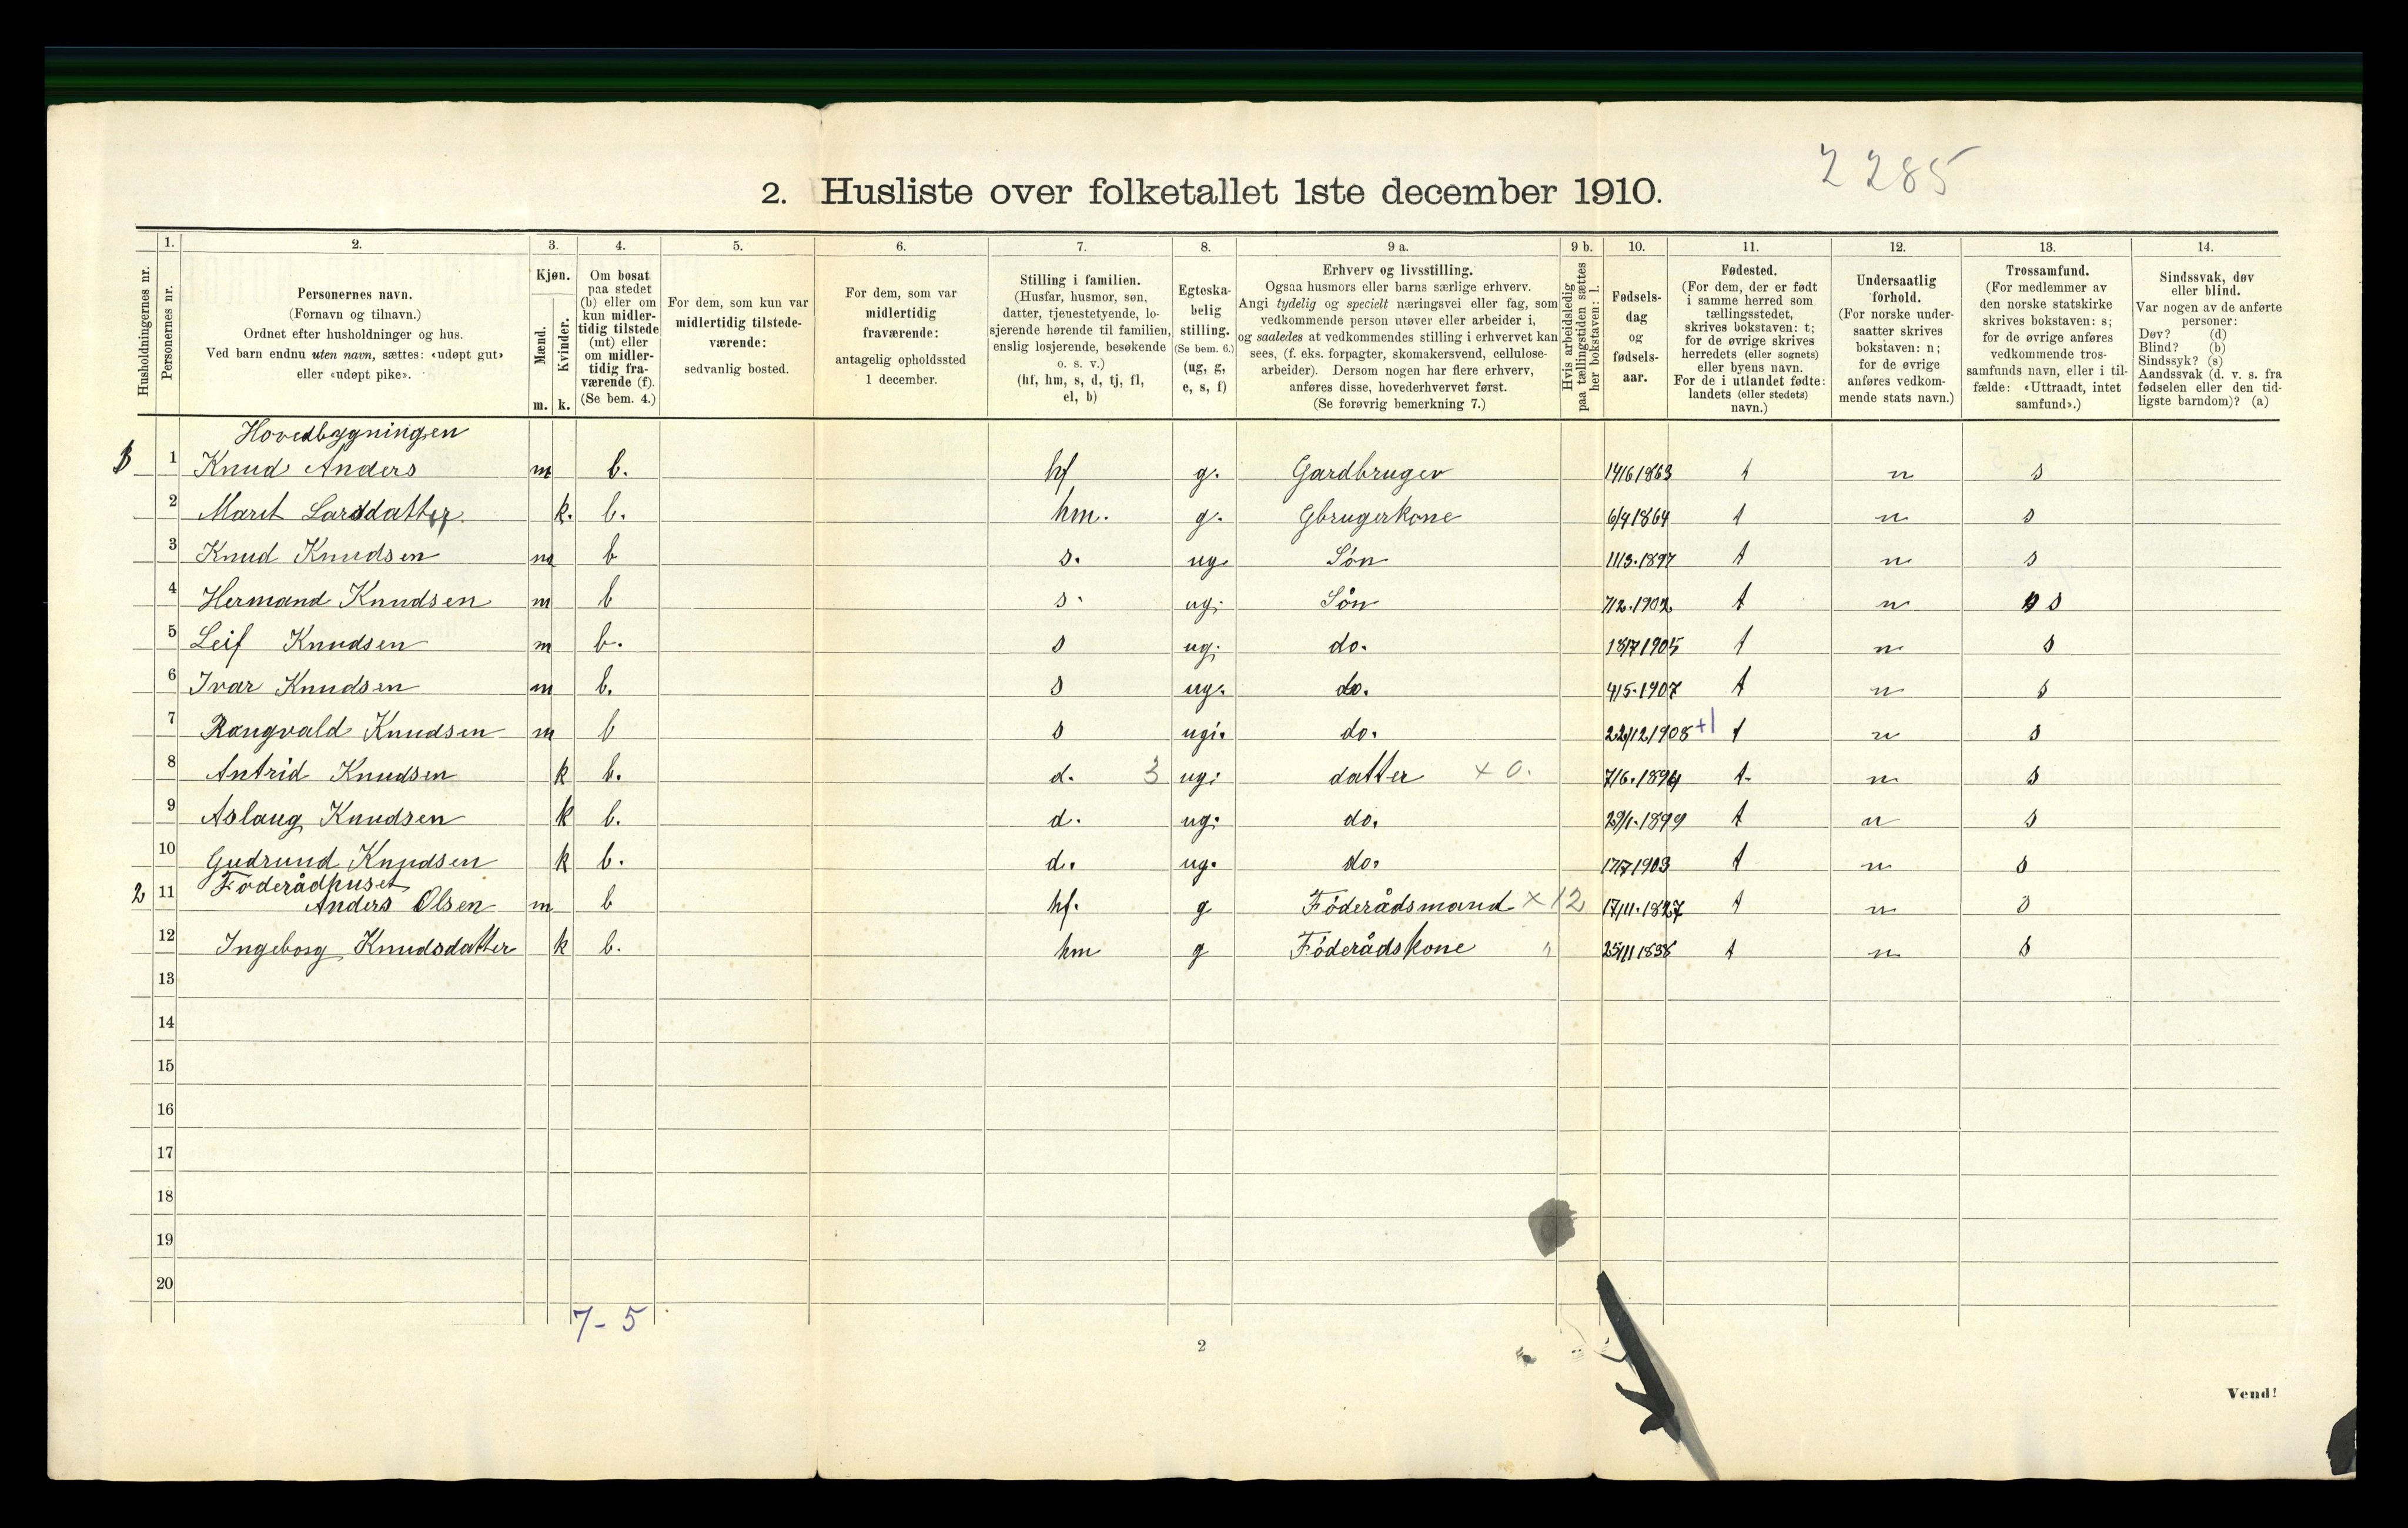 2 285
2. Husliste over folketallet 1ste december 1910.
Husholdningernes nr.
1. Personernes nr.
2. Personernes navn.
(Fornavn og tilnavn.)
Ordnet efter husholdninger og hus.
Ved barn endnu uten navn, sættes: «udøpt gut»
eller «udøpt pike».
3. Kjøn.
Mænd. m.
Kvinder. k.
4. Om bosat
paa stedet
(b) eller om
kun midler-
tidig tilstede
(mt) eller
om midler-
tidig fra-
værende (f).
(Se bem. 4.)
5. For dem, som kun var
midlertidig tilstede-
værende:
sedvanlig bosted.
6. For dem, som var
midlertidig
fraværende:
antagelig opholdssted
1 december.
7. Stilling i familien.
(Husfar, husmor, søn,
datter, tjenestetyende, lo-
sjerende hørende til familien,
enslig losjerende, besøkende
o. s. v.)
(hf, hm, s, d, tj, fl,
el, b)
8. Egteska-
belig
stilling.
(Se bem. 6.)
(ug, g,
e, s, f)
9 a. Erhverv og livsstilling.
Ogsaa husmors eller barns særlige erhverv.
Angi tydelig og specielt næringsvei eller fag, som
vedkommende person utøver eller arbeider i,
og saaledes at vedkommendes stilling i erhvervet kan
sees, (f. eks. forpagter, skomakersvend, cellulose-
arbeider). Dersom nogen har flere erhverv,
anføres disse, hovederhvervet først.
(Se forøvrig bemerkning 7.)
9 b. Hvis arbeidsledig
paa tællingstiden sættes
her bokstaven: l.
10. Fødsels-
dag
og
fødsels-
aar.
11. Fødested.
(For dem, der er født
i samme herred som
tællingsstedet,
skrives bokstaven: t;
for de øvrige skrives
herredets (eller sognets)
eller byens navn.
For de i utlandet fødte:
landets (eller stedets)
navn.)
12. Undersaatlig
forhold.
(For norske under-
saatter skrives
bokstaven: n;
for de øvrige
anføres vedkom-
mende stats navn.)
13. Trossamfund.
(For medlemmer av
den norske statskirke
skrives bokstaven: s;
for de øvrige anføres
vedkommende tros-
samfunds navn, eller i til-
fælde: «Uttraadt, intet
samfund».)
14. Sindssvak, døv
eller blind.
Var nogen av de anførte
personer:
Døv? (d)
Blind? (b)
Sindssyk? (s)
Aandssvak (d. v. s. fra
fødselen eller den tid-
ligste barndom)? (a)
Hovedbygningen
1 1 Knud Anders m b. hf g. Gardbruger 14/6 1863 t n s
2 Marit Larsdatter k. b. hm. g. Gbrugerkone 6/4 1864 t n s
3 Knud Knudsen m b s. ug. Søn 11/3.1897 t n s
4 Hermand Knudsen m b s. ug. Søn 7/2.1902 t n s
5 Leif Knudsen m b. s ug. do. 18/7 1905 t n s
6 Ivar Knudsen m b. s ug. do. 4/5.1907 t n s
7 Rangvald Knudsen m b s ug. do. 22/12 1908 +1 t n s
8 Antrid Knudsen k b. d. 3 ug. datter x 0. 7/6.1894 t. n s
9 Aslaug Knudsen k b. d. ug. do. 29/1.1899 t n s
10 Gudrund Knudsen k b. d. ug. do. 17/7 1903 t n s
Foderådhuset
2 11 Anders Olsen m b hf. g Föderådsmand x 12 17/11.1827 t n s
12 Ingeborg Knudsdatter k b. hm g Föderådskone " 25/11 1838 t n s
13
14
15
16
17
18
19
20
7-5
2
Vend!